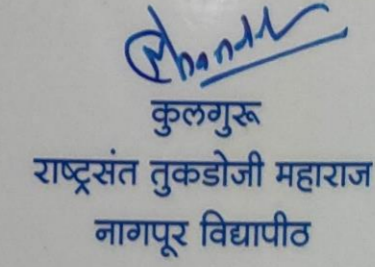 कुलगुरू
राष्ट्रसंत तुकडोजी महाराज
नागपूर विद्यापीठ